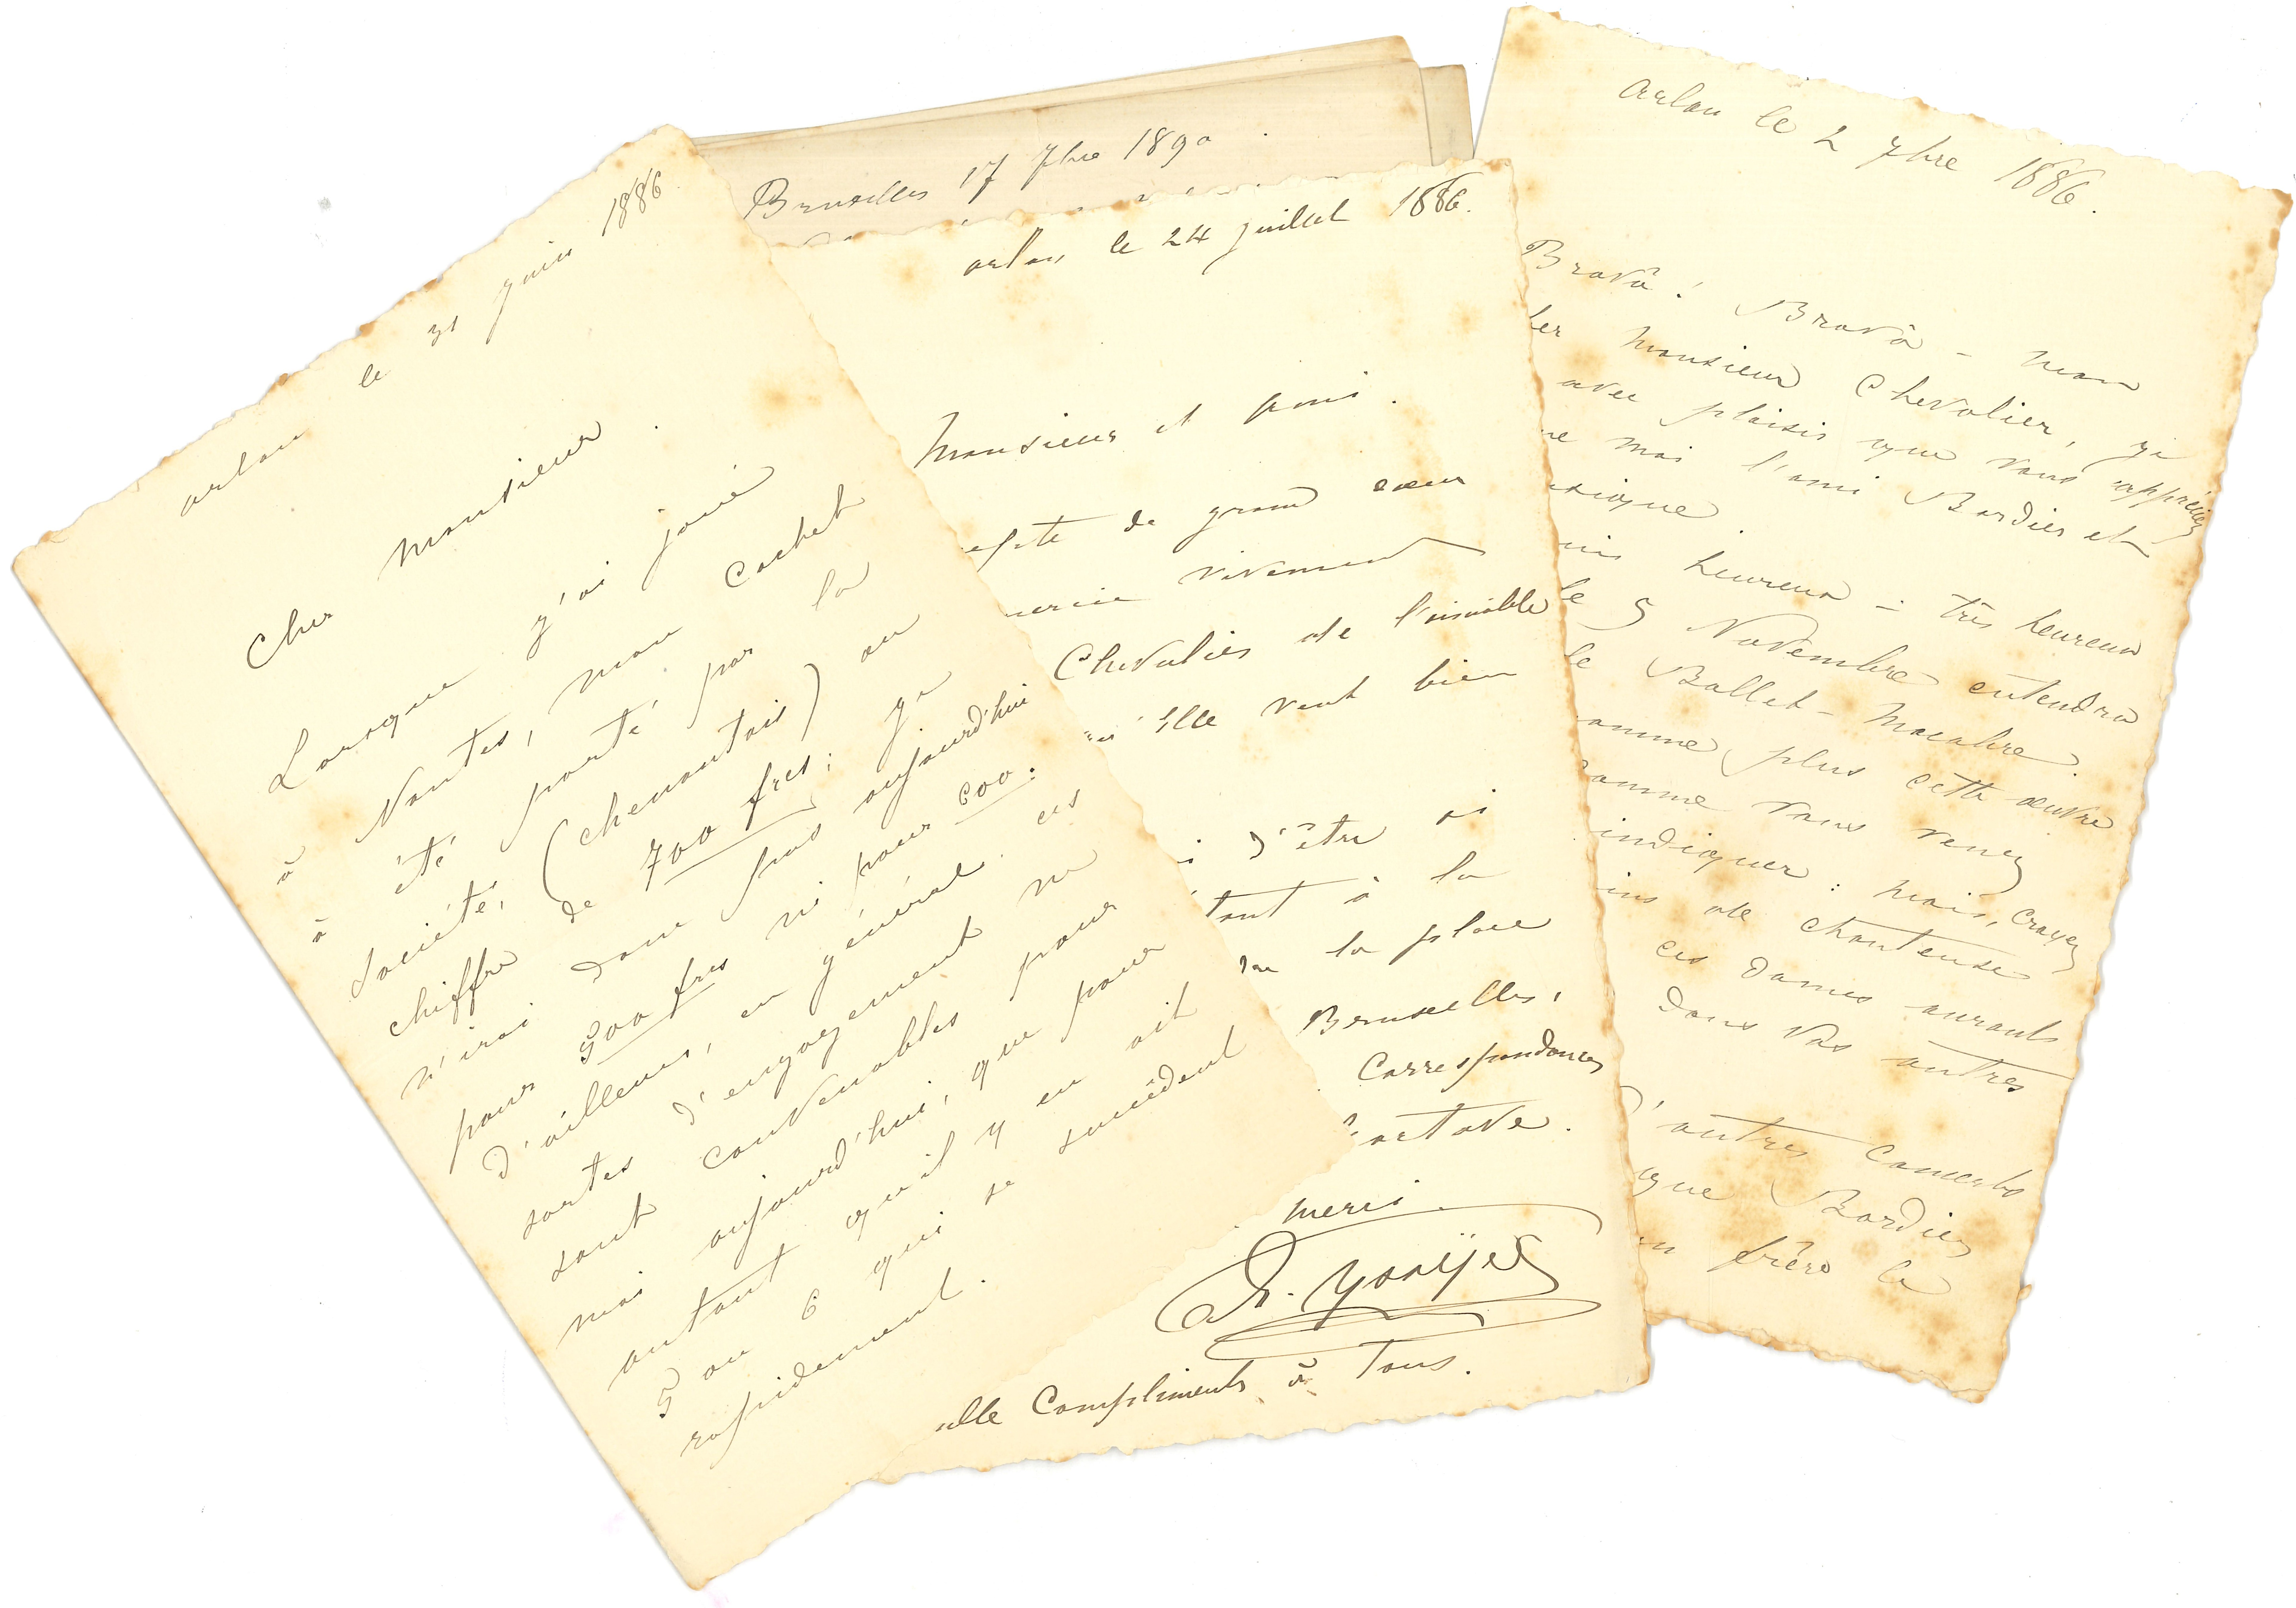 arlon le 21 juin 1886
Cher Monsieur.
Lorsque j'ai joué
à Nantes, mon cachet
a été porté par la
société, (chenantais) au
chiffre de 700 frcs; je
n'irai donc pas aujourd'hui
pour 500 frcs ni pour 600.
d'ailleurs, en général ces
sortes d'engagement ne
sont convenables pour
moi aujourd'hui, que pour
autant qu'il y en ait
5 ou 6 qui se succèdent
rapidement.
Bruxelles 17 7bre 1890
arlon le 24 juillet 1886.
Monsieur et ami.
de grand cœur
vivement
Chevalier de l'aimable
Elle veut bien
d'être si
tant à la
la place
Bruxelles,
Correspondances
octave.
merci.
Ysaÿe
Compliments à Tous.
Arlon le 2 7bre 1886.
Bravô! Bravô - mon
Monsieur Chevalier, je
avec plaisir que vous appréciez
moi l'ami Bordier et
heureux - très heureux
5 Novembre entendre
Ballet-Macabre.
plus cette œuvre
comme vous venez
indiquer: mais, croyez
de chanteuses
ces Dames auront
dans vos autres
d'autres concerts
que Bordier
frère le